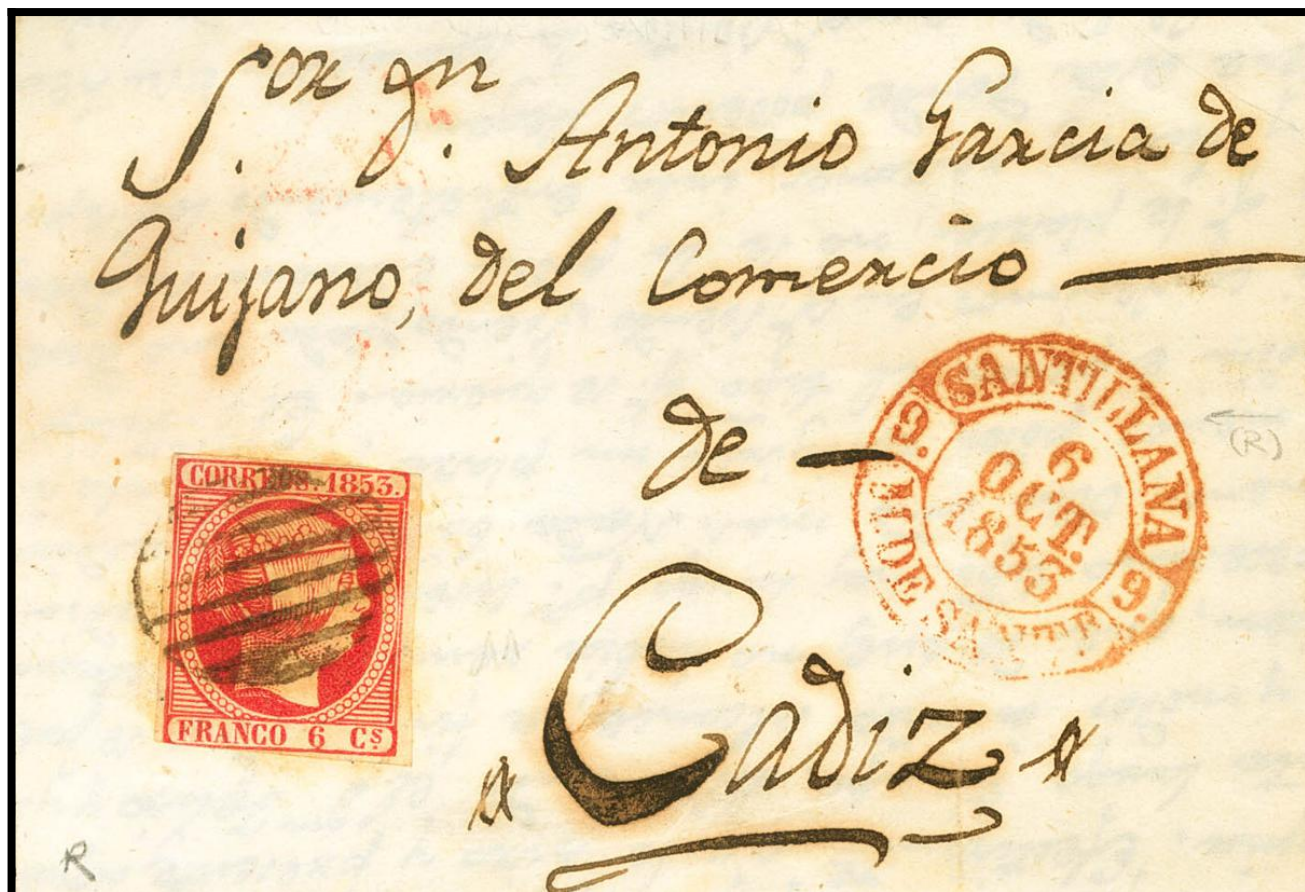 S.or D.n Antonio Garcia de
Quijano, del Comercio
de
Cadiz
CORREOS. 1853.
FRANCO 6 Cs
SANTILLANA
6
OCT.
1853
(R)
R